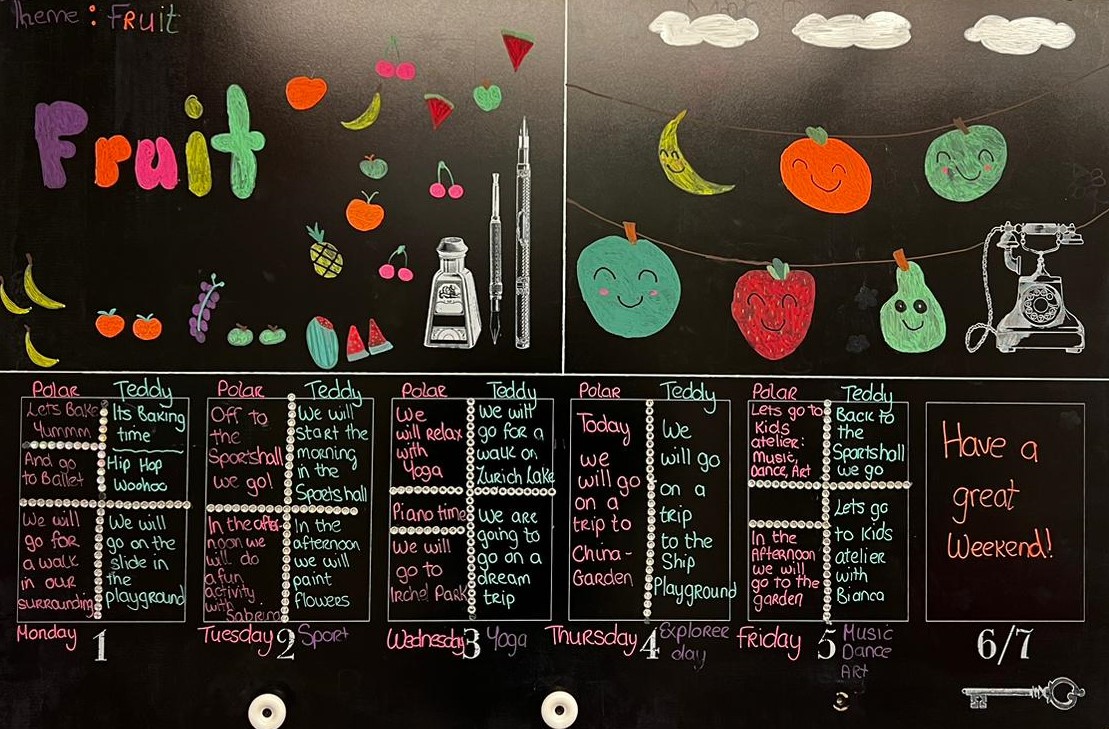 Theme: Fruit
Fruit
Polar
Lets Bake
Yummm
And go
to Ballet
We will
go for
a walk
in our
surrounding
Teddy
Its Baking
time
Hip Hop
Woohoo
We will
go on the
slide in
the
playground
Monday 1
Polar
Off to
the
Sportshall
we go!
In the after-
noon we
will do
a fun
activity
with
Sabrina
Teddy
We will
start the
morning
in the
Sportshall
In the
afternoon
we will
paint
flowers
Tuesday 2 Sport
Polar
We
will relax
with
Yoga
Piano time
We will
go to
Irchel Park
Teddy
We will
go for a
walk on
Zurich Lake
We are
going to
go on a
dream
trip
Wednesday 3 Yoga
Polar
Today
we
will go
on a
trip to
China-
Garden
Teddy
We
will go
on a
trip
to the
Ship
Playground
Thursday 4 Explorer
day
Polar
Lets go to
Kids
atelier:
music,
Dance, Art
In the
Afternoon
we will
go to the
garden
Teddy
Back to
the
Sportshall
we go
Lets go
to Kids
atelier
with
Bianca
Friday 5 Music
Dance
ART
Have a
great
Weekend!
6/7